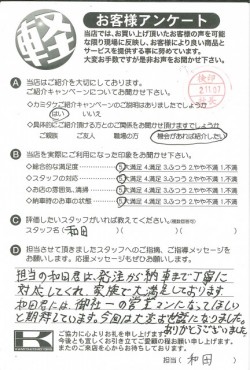 軽
お客様アンケート
当店では、お買い上げ頂いたお客様の声を可能
な限り現場に反映し、お客様により良い商品と
サービスを提供する事に努めています。
大変お手数ですが是非お声をお聞かせ下さい。
2.11.07
A 当店はご紹介を大切にしております。
ご紹介キャンペーンについてお聞かせ下さい
<カミタケご紹介キャンペーンのご説明はありましたでしょうか
はい いいえ
<具体的にご紹介頂ける方とのご関係をお聞かせ頂けますでしょうか
ご親族 ご友人 職場の方 機会があれば紹介したい
B 当店を実際にご利用になった印象をお聞かせ下さい
◇総合的な満足度 5.大満足 4.満足 3.ふつう 2.やや不満 1.不満
◇スタッフの対応 5.大満足 4.満足 3.ふつう 2.やや不満 1.不満
◇お店の雰囲気、清掃 5.大満足 4.満足 3.ふつう 2.やや不満 1.不満
◇納車時のお車の状態 5.大満足 4.満足 3.ふつう 2.やや不満 1.不満
C 評価したいスタッフがいれば教えてください。
スタッフ名( 和田 )
D 担当させて頂きましたスタッフへのご指摘、ご指導メッセージを
お願いします。応援メッセージもぜひお願いします。
担当の和田君は、発注から納車まで丁寧に
対応してくれ、家族で大満足しております
和田君には御社一の営業マンになってほしい
と期待しています。今回は大変お世話になりました。
ありがとうございました
K
ご協力に心よりお礼を申し上げます。
今後とも宜しくお引き立てご愛顧の程お願い申し上げます。
またのご来店を心からお待ちしております。
担当( 和田 )